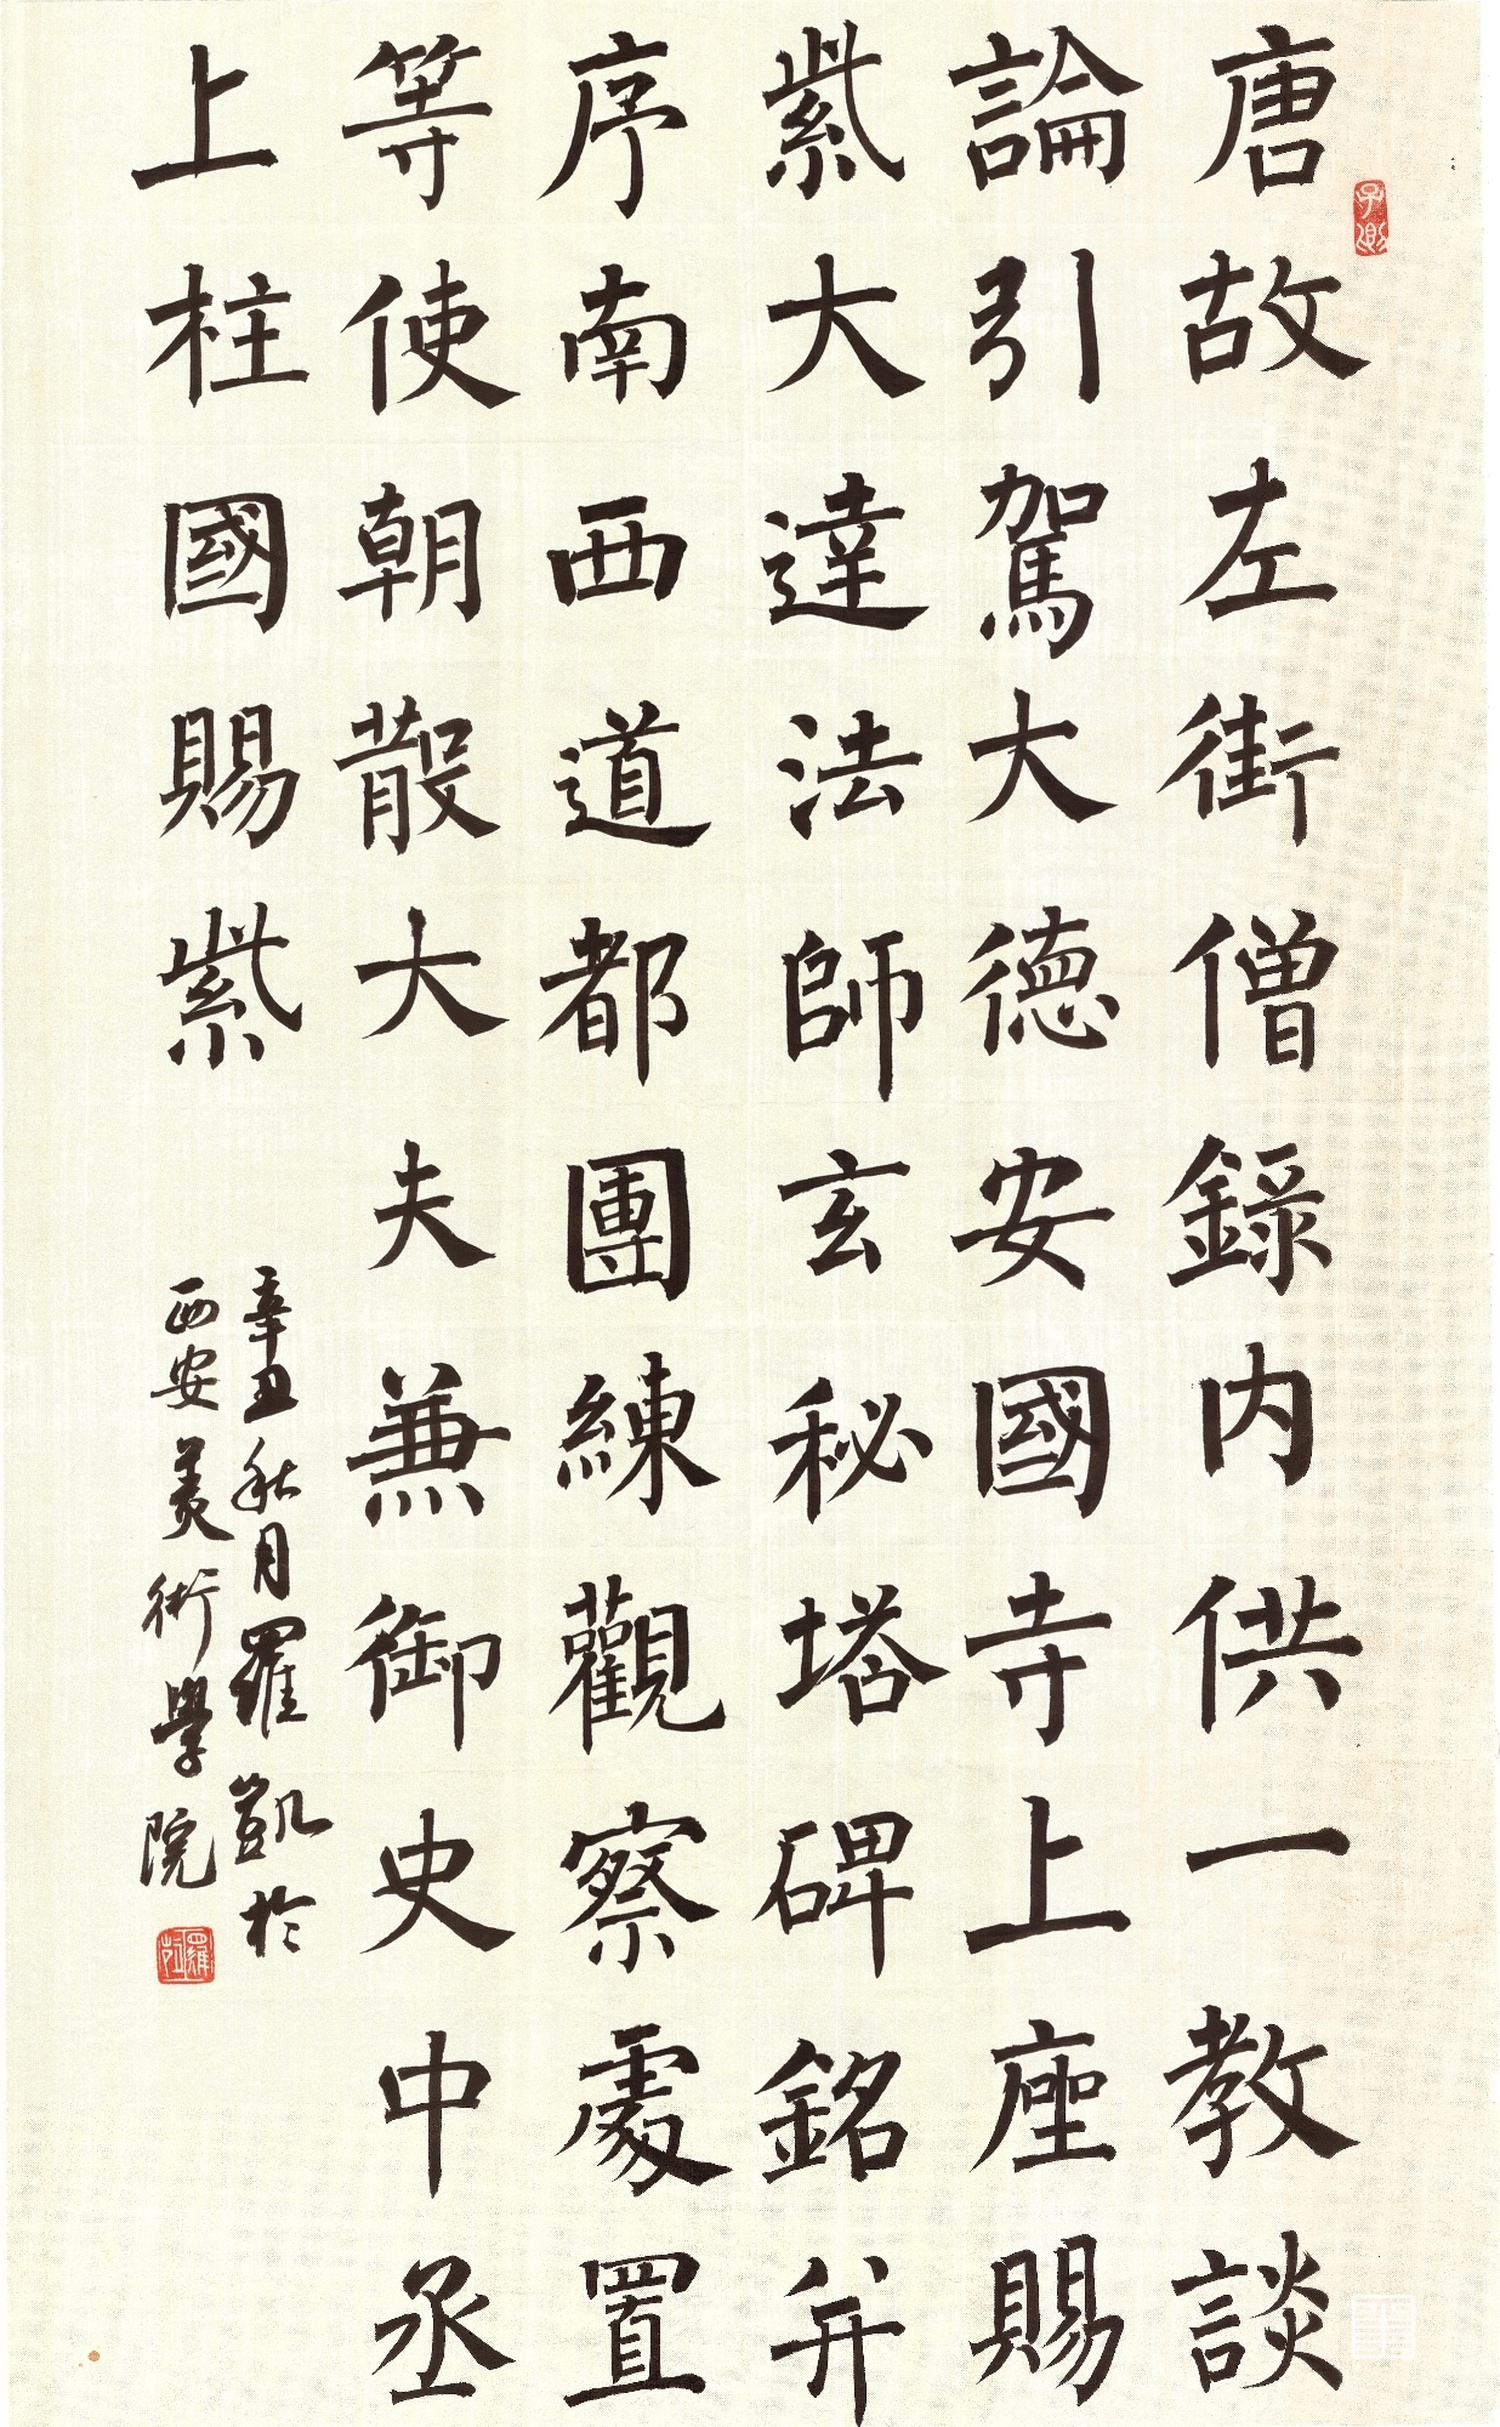 唐故左街僧錄内供一教談
論引駕大德安國寺上座賜
紫大達法師玄秘塔碑銘并
序南西道都團練觀察處置
等使朝散大夫兼御史中丞
上柱國賜紫
辛丑秋月羅凱於
西安美術學院